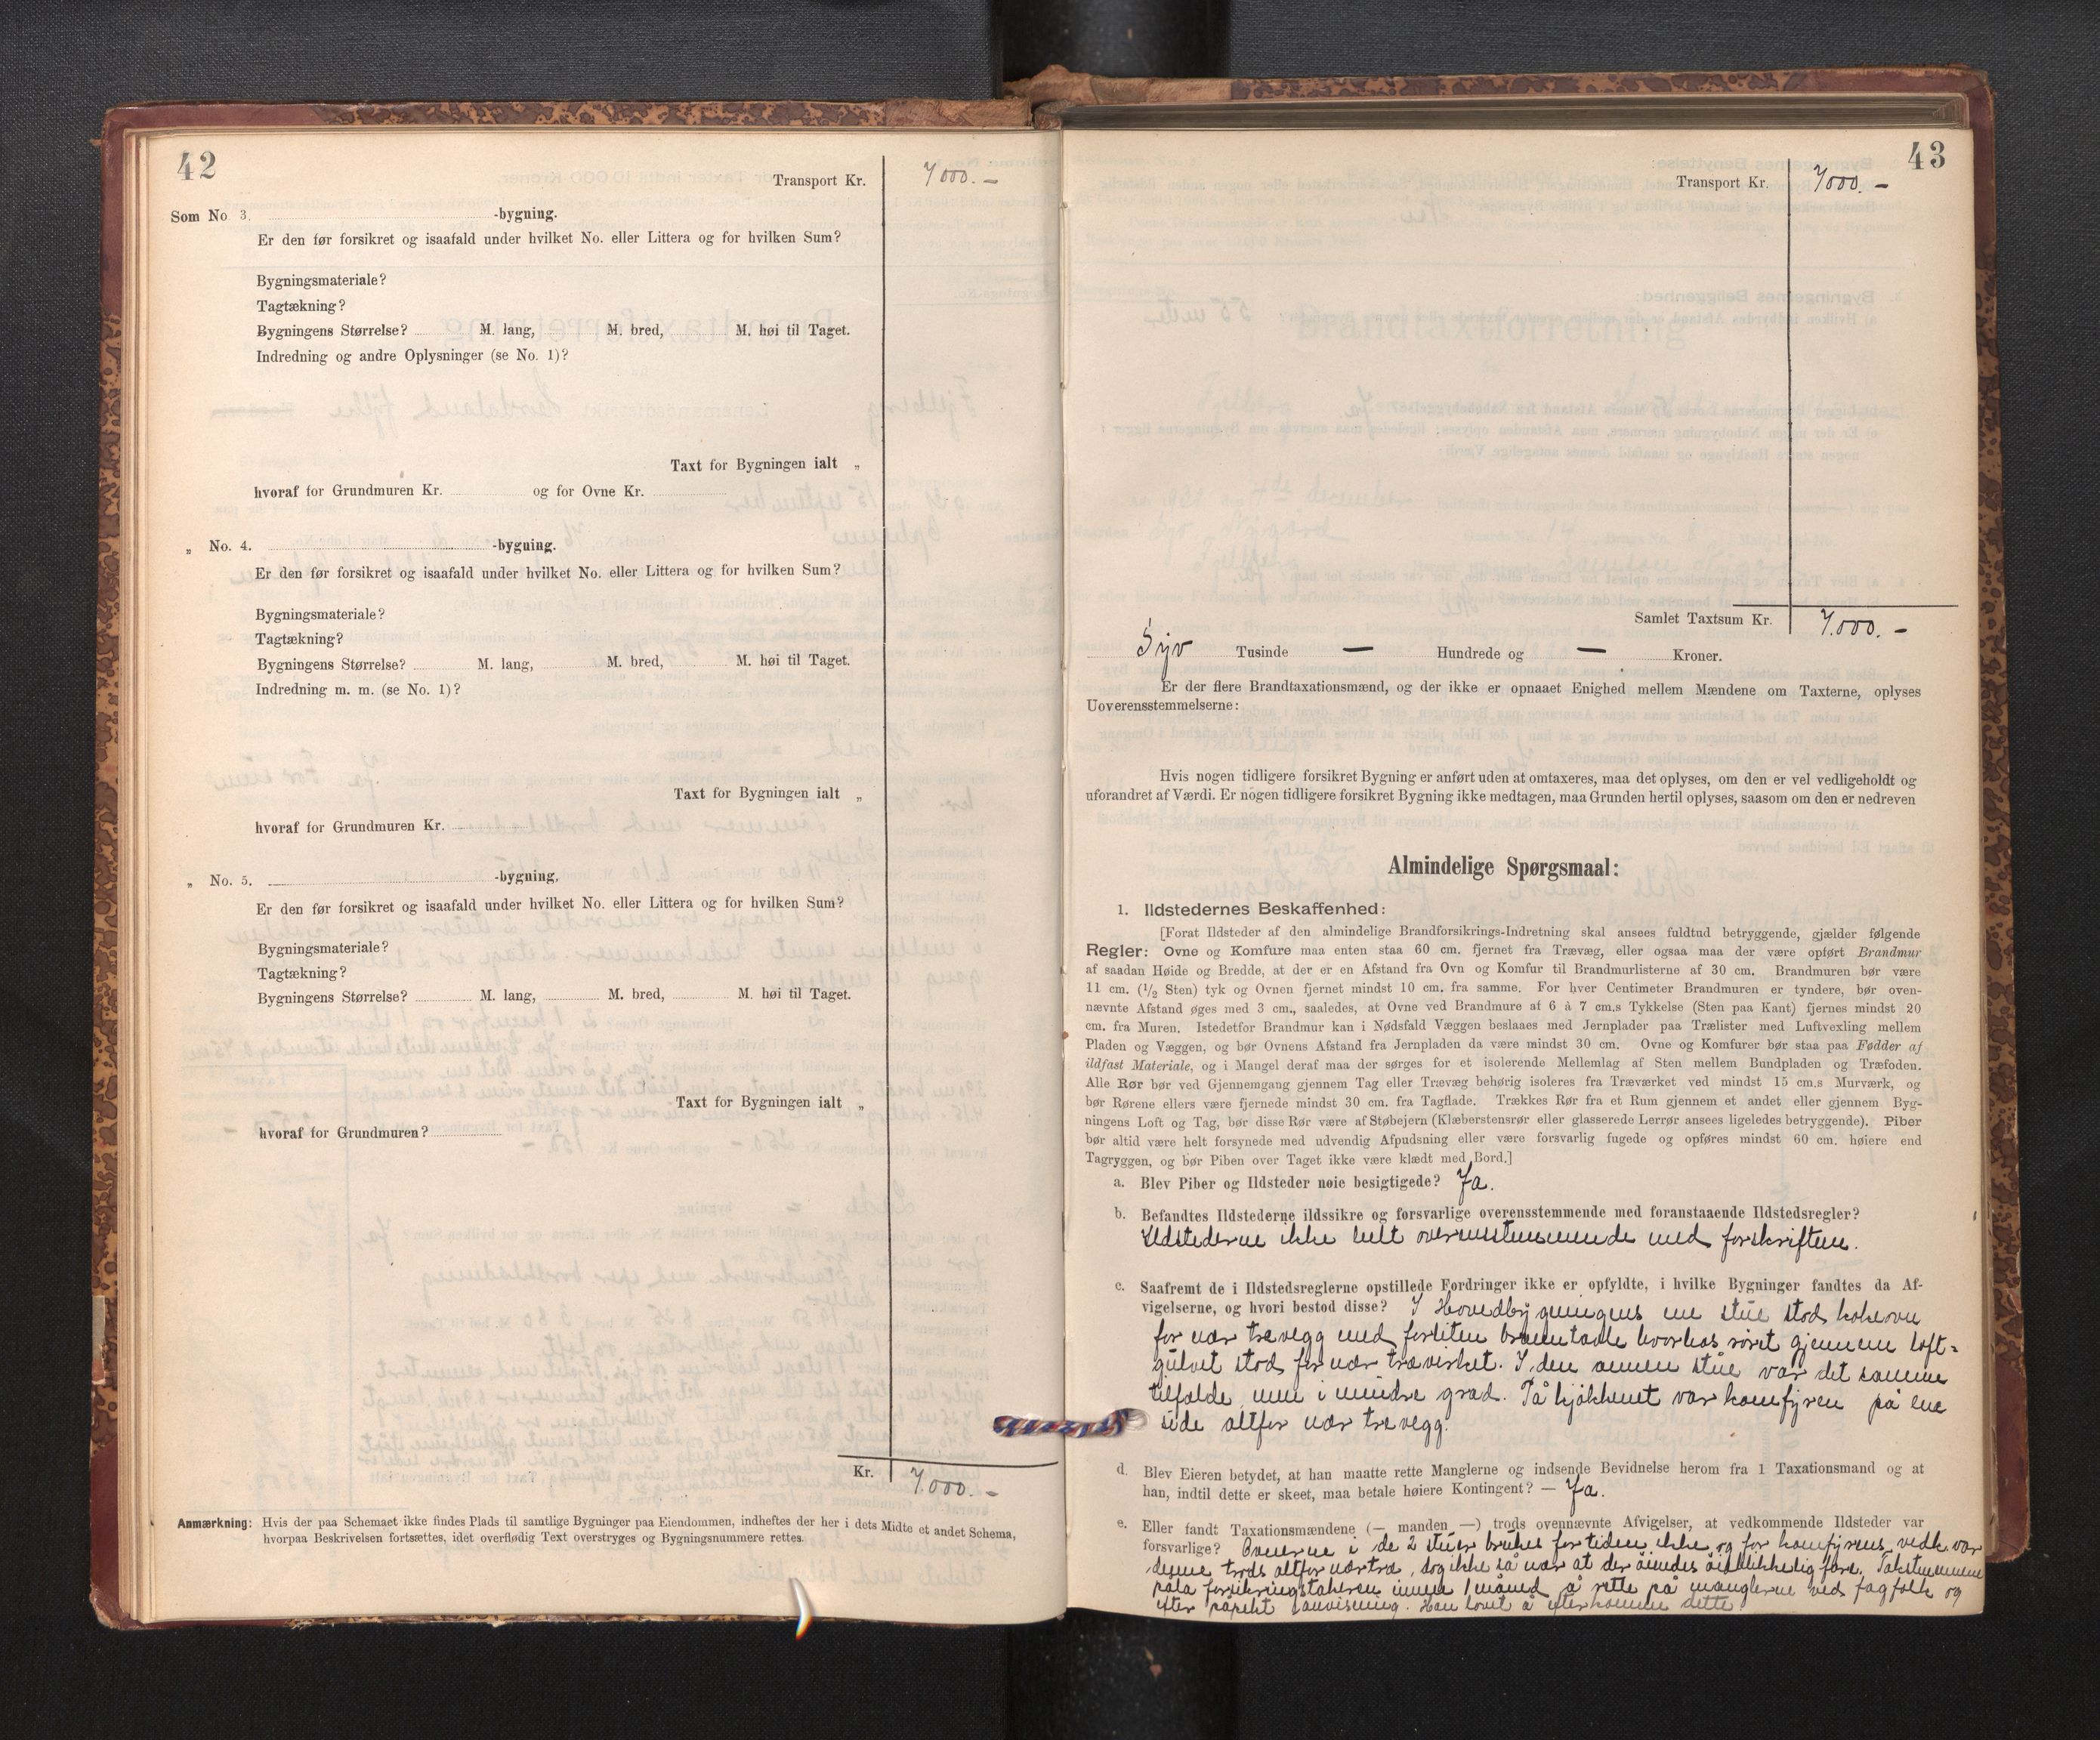 42
Transport Kr. 7000.-
Som No 3. -bygning.
Er den før forsikret og isaafald under hvilket No. eller Littera og for hvilken Sum?
Bygningsmateriale?
Tagtækning?
Bygningens Størrelse? M. lang, M. bred, M. høi til Taget.
Indredning og andre Oplysninger (se No. 1)?
Taxt for Bygningen ialt „
hvoraf for Grundmuren Kr. og for Ovne Kr.
„ No. 4. -bygning.
Er den før forsikret og isaafald under hvilket No. eller Littera og for hvilken Sum?
Bygningsmateriale?
Tagtækning?
Bygningens Størrelse? M. lang, M. bred, M. høi til Taget.
Indredning m. m. (se No. 1)?
Taxt for Bygningen ialt „
hvoraf for Grundmuren Kr.
„ No. 5. -bygning.
Er den før forsikret og isaafald under hvilket No. eller Littera og for hvilken Sum?
Bygningsmateriale?
Tagtækning?
Bygningens Størrelse? M. lang, M. bred, M. høi til Taget.
Taxt for Bygningen ialt „
hvoraf for Grundmuren?
Kr. 7.000.-
Anmærkning: Hvis der paa Schemaet ikke findes Plads til samtlige Bygninger paa Eiendommen, indheftes der her i dets Midte et andet Schema,
hvorpaa Beskrivelsen fortsættes, idet overflødig Text overstryges og Bygningsnummere rettes.
43
Transport Kr. 7000.-
Samlet Taxtsum Kr. 7.000.-
Syv Tusinde — Hundrede og — Kroner.
Er der flere Brandtaxationsmænd, og der ikke er opnaaet Enighed mellem Mændene om Taxterne, oplyses
Uoverensstemmelserne:
Hvis nogen tidligere forsikret Bygning er anført uden at omtaxeres, maa det oplyses, om den er vel vedligeholdt og
uforandret af Værdi. Er nogen tidligere forsikret Bygning ikke medtagen, maa Grunden hertil oplyses, saasom om den er nedreven
Almindelige Spørgsmaal:
1. Ildstedernes Beskaffenhed:
[Forat Ildsteder af den almindelige Brandforsikrings-Indretning skal ansees fuldtud betryggende, gjælder følgende
Regler: Ovne og Komfure maa enten staa 60 cm. fjernet fra Trævæg, eller ogsaa maa der være opført Brandmur
af saadan Høide og Bredde, at der er en Afstand fra Ovn og Komfur til Brandmurlisterne af 30 cm. Brandmuren bør være
11 cm. (1/2 Sten) tyk og Ovnen fjernet mindst 10 cm. fra samme. For hver Centimeter Brandmuren er tyndere, bør oven-
nævnte Afstand øges med 3 cm., saaledes, at Ovne ved Brandmure af 6 à 7 cm.s Tykkelse (Sten paa Kant) fjernes mindst 20
cm. fra Muren. Istedetfor Brandmur kan i Nødsfald Væggen beslaaes med Jernplader paa Trælister med Luftvexling mellem
Pladen og Væggen, og bør Ovnens Afstand fra Jernpladen da være mindst 30 cm. Ovne og Komfurer bør staa paa Fødder af
ildfast Materiale, og i Mangel deraf maa der sørges for et isolerende Mellemlag af Sten mellem Bundpladen og Træfoden.
Alle Rør bør ved Gjennemgang gjennem Tag eller Trævæg behørig isoleres fra Træværket ved mindst 15 cm.s Murværk, og
bør Rørene ellers være fjernede mindst 30 cm. fra Tagflade. Trækkes Rør fra et Rum gjennem et andet eller gjennem Byg-
ningens Loft og Tag, bør disse Rør være af Støbejern (Klæberstensrør eller glasserede Lerrør ansees ligeledes betryggende). Piber
bør altid være helt forsynede med udvendig Afpudsning eller være forsvarlig fugede og opføres mindst 60 cm. høiere end
Tagryggen, og bør Piben over Taget ikke være klædt med Bord.]
a. Blev Piber og Ildsteder nøie besigtigede? Ja.
b. Befandtes Ildstederne ildssikre og forsvarlige overensstemmende med foranstaaende Ildstedsregler?
Ildstederne ikke helt overensstemmende med forskriften.
c. Saafremt de i Ildstedsreglerne opstillede Fordringer ikke er opfyldte, i hvilke Bygninger fandtes da Af-
vigelserne, og hvori bestod disse? I Hovedbygningens ene stue stod kokeovn
for nær trevegg med forliten branntavle hvorhos røret gjennem loft-
gulvet stod for nær træverket. I den annen stue var det samme
tilfælde, men i mindre grad. På kjøkkenet var komfyren på ene
side altfor nær trevegg.
d. Blev Eieren betydet, at han maatte rette Manglerne og indsende Bevidnelse herom fra 1 Taxationsmand og at
han, indtil dette er skeet, maa betale høiere Kontingent? — Ja.
e. Eller fandt Taxationsmændene (— manden —) trods ovennævnte Afvigelser, at vedkommende Ildsteder var
forsvarlige? Ovnerne i de 2 stuer brukes for tiden ikke og for komfyrens vedk. var
denne trods altfor nær tre, dog ikke så nær at der øinedes øieblikkelig fare. Takstmennene
påla forsikringstakeren innen 1 måned å rette på manglerne ved fagfolk og
efter anvisning. Han lovet å efterkomme dette.